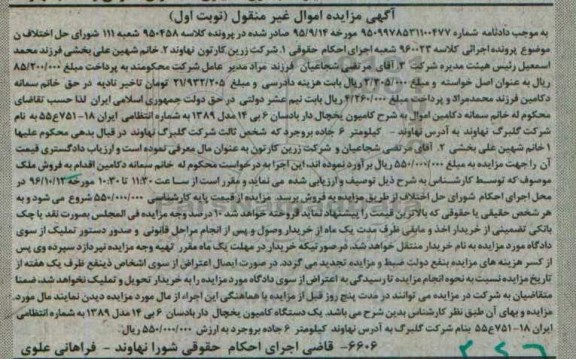 آگهی مزایده اموال غیر منقول (نوبت اول)
به موجب دادنامه شماره ۹۵۰۹۹۷۸۵۳۱۱۰۰۴۷۷ مورخه ۹۵/۹/۱۴ صادر شده در پرونده کلاسه ۹۵۰۴۵۸ شعبه ۱۱۱ شورای حل اختلاف ن
موضوع پرونده اجرائی کلاسه ۹۶۰۰۲۳ شعبه اجرای احکام حقوقی ۱. شرکت زرین کارتون نهاوند ۲. خانم شهین علی بخشی فرزند محمد
اسمعیل رئیس هیئت مدیره شرکت ۳. آقای مرتضی شجاعیان فرزند مراد مدیر عامل شرکت محکومند به پرداخت مبلغ ۸۵/۲۰۰/۰۰۰
ریال به عنوان اصل خواسته و مبلغ ۲/۳۰۵/۰۰۰ ریال بابت هزینه دادرسی و مبلغ ۳۱/۹۳۲/۲۰۵ تومان تاخیر تادیه در حق خانم سمانه
دکامین فرزند محمدمراد و پرداخت مبلغ ۴/۲۶۰/۰۰۰ ریال بابت نیم عشر دولتی در حق دولت جمهوری اسلامی ایران لذا حسب تقاضای
محکوم له خانم سمانه دکامین اموال به شرح کامیون یخچال دار بادسان ۶ بی ۱۴ مدل ۱۳۸۹ به شماره انتظامی ایران ۱۸-۷۵۱ع۵۵ به نام
شرکت گلبرگ نهاوند به آدرس نهاوند - کیلومتر ۶ جاده بروجرد که شخص ثالث شرکت گلبرگ نهاوند در قبال بدهی محکوم علیها
۱خانم شهین علی بخشی ۲. آقای مرتضی شجاعیان و شرکت زرین کارتون به عنوان مال معرفی نموده است و ارزیاب دادگستری قیمت
آن را جهت مزایده به مبلغ ۵۵۰/۰۰۰/۰۰۰ ریال برآورد نموده اند، این اجرا به درخواست محکوم له خانم سمانه دکامین اقدام به فروش ملک
موسوف که توسط کارشناس به شرح ذیل توصیف و ارزیابی شده می نماید و مقرر است از ساعت ۱۱:۳۰ تا ۱۰:۳۰ مورخه ۹۶/۱۰/۱۳ در
محل اجرای احکام شورای حل اختلاف از طریق مزایده به فروش برسد مزایده از قیمت پایه کارشناسی ۵۵۰/۰۰۰/۰۰۰ شروع می شود و به
هر شخص حقیقی یا حقوقی که بالاترین قیمت را پیشنهاد نماید فروخته خواهد شد ۱۰ درصد وجه مزایده فی المجلس بصورت نقد یا چک
بانکی تضمینی از خریدار اخذ و مابقی ظرف مدت یک ماه از خریدار وصول و پس از انجام مراحل قانونی و صدور دستور تملیک از سوی
دادگاه مورد مزایده به نام خریدار منتقل خواهد شد. در صورتیکه خریدار در مهلت یک ماه مقرر تهیه وجه مزایده نپردازد سپرده وی پس
از کسر هزینه های مزایده بنفع دولت ضبط و مزایده تجدید می گردد. در صورت ایصال اعتراض از سوی اشخاص ذینفع ظرف یک هفته از
تاریخ مزایده نسبت به نحوه انجام مزایده تا رسیدگی به اعتراض از سوی دادگاه مورد مزایده را به خریدار تحویل و تملیک نخواهد شد، ضمنا
متقاضیان به شرکت در مزایده می توانند در مدت پنج روز قبل از مزایده با هماهنگی این اجراء از مال مورد مزایده دیدن نمایند مال مورد
مزایده و بهای آن طبق نظر کارشناس بدین شرح می باشد. یک دستگاه کامیون یخچال دار بادسان ۶ بی ۱۴ مدل ۱۳۸۹ به شماره انتظامی
ایران ۱۸-۷۵۱ع۵۵ بنام شرکت گلبرگ به آدرس نهاوند کیلومتر ۶ جاده بروجرد به ارزش ۵۵۰/۰۰۰/۰۰۰ ریال.
۶۶۰۶- قاضی اجرای احکام حقوقی شورا نهاوند - فراهانی علوی